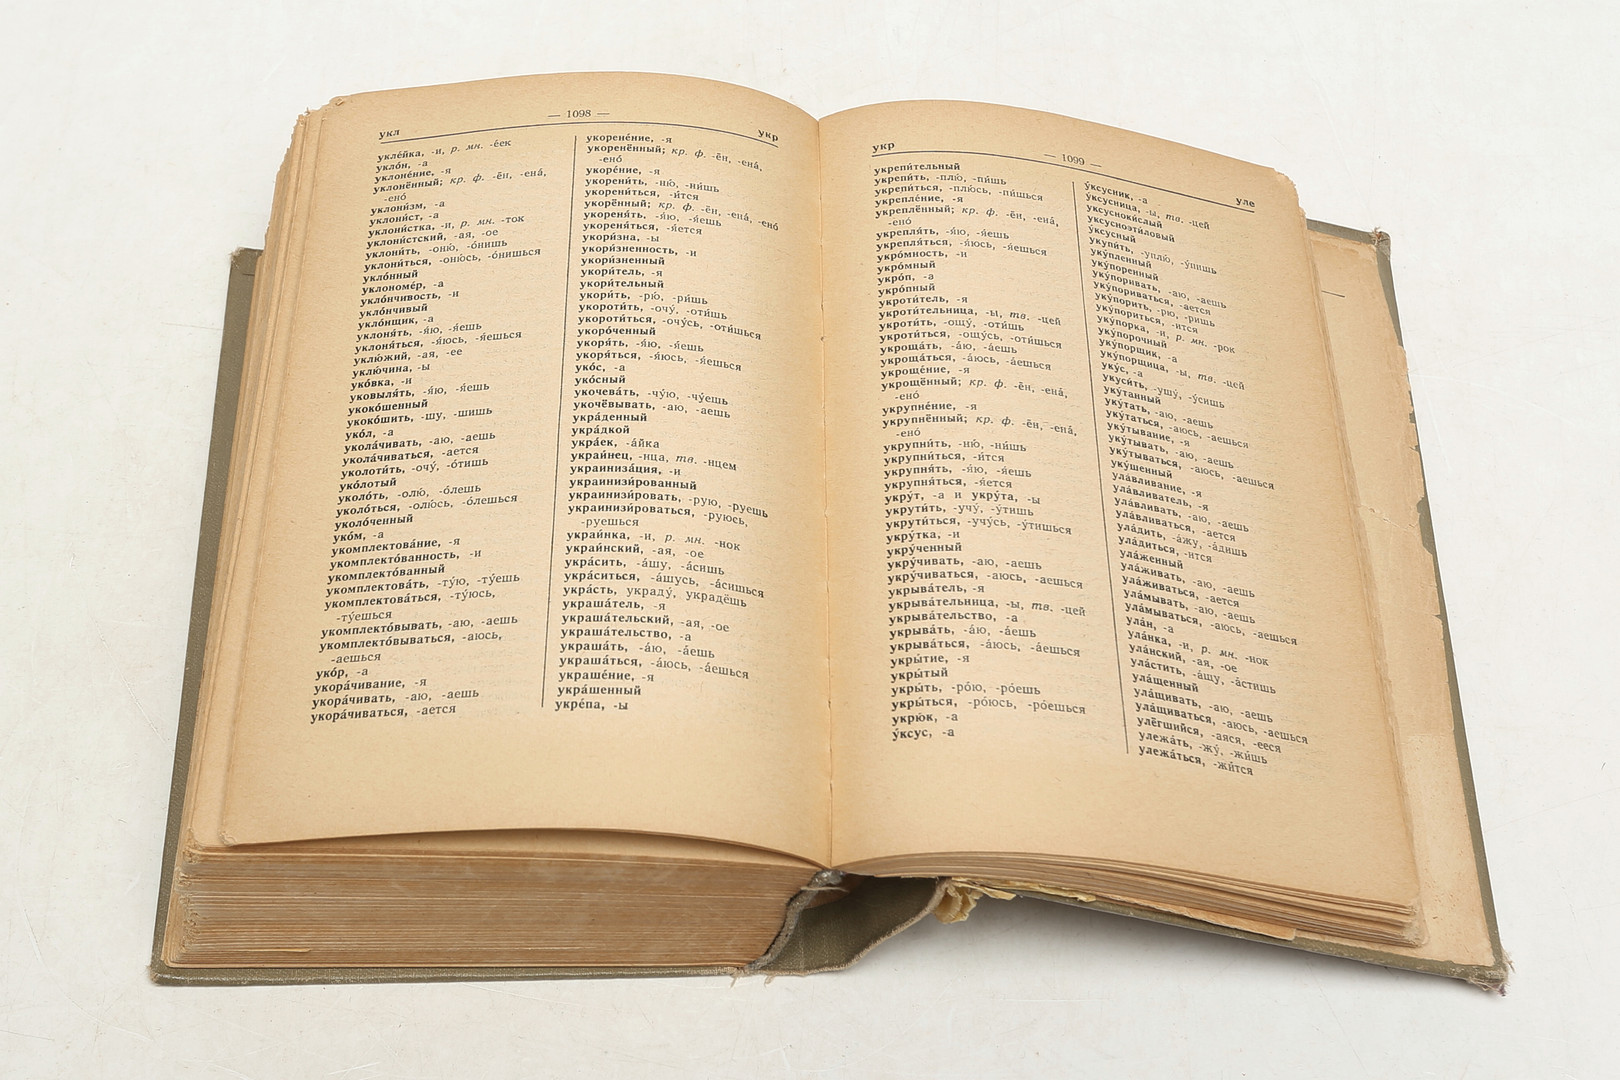 укл
— 1098 —
укр
укле́йка, -и, р. мн. -е́ек
укло́н, -а
уклоне́ние, -я
уклонённый; кр. ф. -ён, -ена́,
-ено́
уклони́зм, -а
уклони́ст, -а
уклони́стка, -и, р. мн. -ток
уклони́стский, -ая, -ое
уклони́ть, -оню́, -о́нишь
уклони́ться, -оню́сь, -о́нишься
укло́нный
уклономе́р, -а
укло́нчивость, -и
укло́нчивый
укло́нщик, -а
уклоня́ть, -я́ю, -я́ешь
уклоня́ться, -я́юсь, -я́ешься
уклю́жий, -ая, -ее
уклю́чина, -ы
уко́вка, -и
уковыля́ть, -я́ю, -я́ешь
укоко́шенный
укоко́шить, -шу, -шишь
уко́л, -а
укола́чивать, -аю, -аешь
укола́чиваться, -ается
уколоти́ть, -очу́, -о́тишь
уко́лотый
уколо́ть, -олю́, -о́лешь
уколо́ться, -олю́сь, -о́лешься
уколо́ченный
уко́м, -а
укомплектова́ние, -я
укомплекто́ванность, -и
укомплекто́ванный
укомплектова́ть, -ту́ю, -ту́ешь
укомплектова́ться, -ту́юсь,
-ту́ешься
укомплекто́вывать, -аю, -аешь
укомплекто́вываться, -аюсь,
-аешься
уко́р, -а
укора́чивание, -я
укора́чивать, -аю, -аешь
укора́чиваться, -ается
укорене́ние, -я
укоренённый; кр. ф. -ён, -ена́,
-ено́
укоре́ние, -я
укорени́ть, -ню́, -ни́шь
укорени́ться, -и́тся
укорённый; кр. ф. -ён, -ена́, -ено́
укореня́ть, -я́ю, -я́ешь
укореня́ться, -я́ется
укори́зна, -ы
укори́зненность, -и
укори́зненный
укори́тель, -я
укори́тельный
укори́ть, -рю́, -ри́шь
укороти́ть, -очу́, -оти́шь
укороти́ться, -очу́сь, -оти́шься
укоро́ченный
укоря́ть, -я́ю, -я́ешь
укоря́ться, -я́юсь, -я́ешься
уко́с, -а
уко́сный
укочева́ть, -чу́ю, -чу́ешь
укочёвывать, -аю, -аешь
укра́денный
укра́дкой
укра́ек, -а́йка
украи́нец, -нца, тв. -нцем
украиниза́ция, -и
украинизи́рованный
украинизи́ровать, -рую, -руешь
украинизи́роваться, -руюсь,
-руешься
украи́нка, -и, р. мн. -нок
украи́нский, -ая, -ое
укра́сить, -а́шу, -а́сишь
укра́ситься, -а́шусь, -а́сишься
укра́сть, украду́, украдёшь
украша́тель, -я
украша́тельский, -ая, -ое
украша́тельство, -а
украша́ть, -а́ю, -а́ешь
украша́ться, -а́юсь, -а́ешься
украше́ние, -я
укра́шенный
укре́па, -ы
укр
— 1099 —
уле
укрепи́тельный
укрепи́ть, -плю́, -пи́шь
укрепи́ться, -плю́сь, -пи́шься
укрепле́ние, -я
укреплённый; кр. ф. -ён, -ена́,
-ено́
укрепля́ть, -я́ю, -я́ешь
укрепля́ться, -я́юсь, -я́ешься
укро́мность, -и
укро́мный
укро́п, -а
укро́пный
укроти́тель, -я
укроти́тельница, -ы, тв. -цей
укроти́ть, -ощу́, -оти́шь
укроти́ться, -ощу́сь, -оти́шься
укроща́ть, -а́ю, -а́ешь
укроща́ться, -а́юсь, -а́ешься
укроще́ние, -я
укрощённый; кр. ф. -ён, -ена́,
-ено́
укрупне́ние, -я
укрупнённый; кр. ф. -ён, -ена́,
-ено́
укрупни́ть, -ню́, -ни́шь
укрупни́ться, -и́тся
укрупня́ть, -я́ю, -я́ешь
укрупня́ться, -я́ется
укру́т, -а и укру́та, -ы
укрути́ть, -учу́, -у́тишь
укрути́ться, -учу́сь, -у́тишься
укру́тка, -и
укру́ченный
укру́чивать, -аю, -аешь
укру́чиваться, -аюсь, -аешься
укрыва́тель, -я
укрыва́тельница, -ы, тв. -цей
укрыва́тельство, -а
укрыва́ть, -а́ю, -а́ешь
укрыва́ться, -а́юсь, -а́ешься
укры́тие, -я
укры́тый
укры́ть, -ро́ю, -ро́ешь
укры́ться, -ро́юсь, -ро́ешься
укрю́к, -а
у́ксус, -а
у́ксусник, -а
у́ксусница, -ы, тв. -цей
уксусноки́слый
уксусноэти́ловый
у́ксусный
укупи́ть, -уплю́, -у́пишь
уку́пленный
уку́поренный
уку́поривать, -аю, -аешь
уку́пориваться, -ается
уку́порить, -рю, -ришь
уку́пориться, -ится
уку́порка, -и, р. мн. -рок
уку́порочный
уку́порщик, -а
уку́порщица, -ы, тв. -цей
уку́с, -а
укуси́ть, -ушу́, -у́сишь
уку́танный
уку́тать, -аю, -аешь
уку́таться, -аюсь, -аешься
уку́тывание, -я
уку́тывать, -аю, -аешь
уку́тываться, -аюсь, -аешься
уку́шенный
ула́вливание, -я
ула́вливатель, -я
ула́вливать, -аю, -аешь
ула́вливаться, -ается
ула́дить, -а́жу, -а́дишь
ула́диться, -ится
ула́женный
ула́живать, -аю, -аешь
ула́живаться, -ается
ула́мывать, -аю, -аешь
ула́мываться, -аюсь, -аешься
ула́н, -а
ула́нка, -и, р. мн. -нок
ула́нский, -ая, -ое
ула́стить, -а́щу, -а́стишь
ула́щенный
ула́щивать, -аю, -аешь
ула́щиваться, -аюсь, -аешься
улёгшийся, -аяся, -ееся
улежа́ть, -жу́, -жи́шь
улежа́ться, -жи́тся